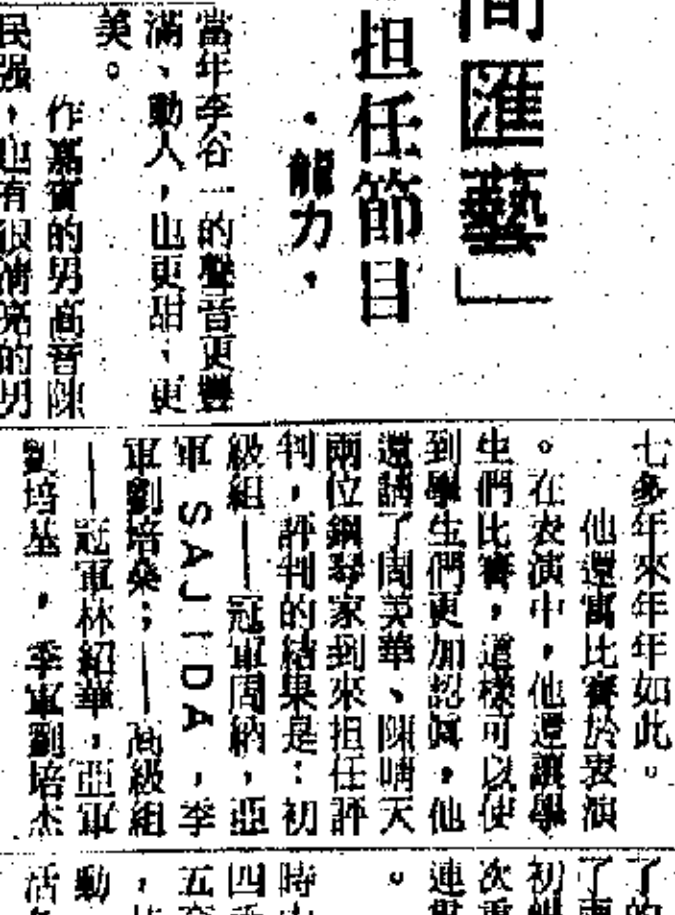 間匯藝」
担任節目
·龍力·
當年李谷一的聲音更豐
滿、動人，也更甜、更
美。
作嘉賓的男高音陳
民强，也有很清亮的男
七多年來年年如此。
他還寓比賽於表演
。在表演中，他還讓學
生們比賽，這樣可以使
到學生們更加認眞，他
還請了周美華、陳晴天
兩位鋼琴家到來担任評
判，評判的結果是：初
級組——冠軍周納，亞
軍SAJIDA，季
軍劉培燊；——高級組
——冠軍林紹華，亞軍
劉培基，季軍劉培杰
了的
了兩
初
次重
連
。
時
四
五
，
動
活